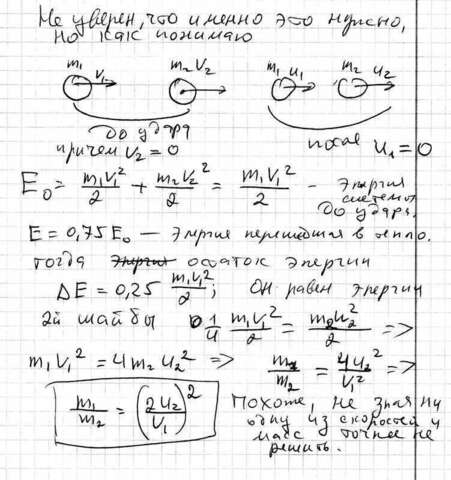 Не уверен, что именно это нужно,
но как понимаю
m₁ V₁ m₂ V₂ m₁ u₁ m₂ u₂
До удара
причем V₂ = 0
после u₁ = 0
E₀ = m₁V₁²/2 + m₂V₂²/2 = m₁V₁²/2 - Энергия
системы
до удара.
E = 0,75 E₀ — Энергия перешедшая в тепло.
тогда остаток энергии
ΔE = 0,25 m₁V₁²/2; Он равен энергии
2й шайбы 1/4 m₁V₁²/2 = m₂u₂²/2 =>
m₁V₁² = 4m₂u₂² => m₁/m₂ = 4u₂²/V₁² =>
m₁/m₂ = (2u₂/V₁)²
Похоже, не зная ни
одну из скоростей и
масс точнее не
решить.